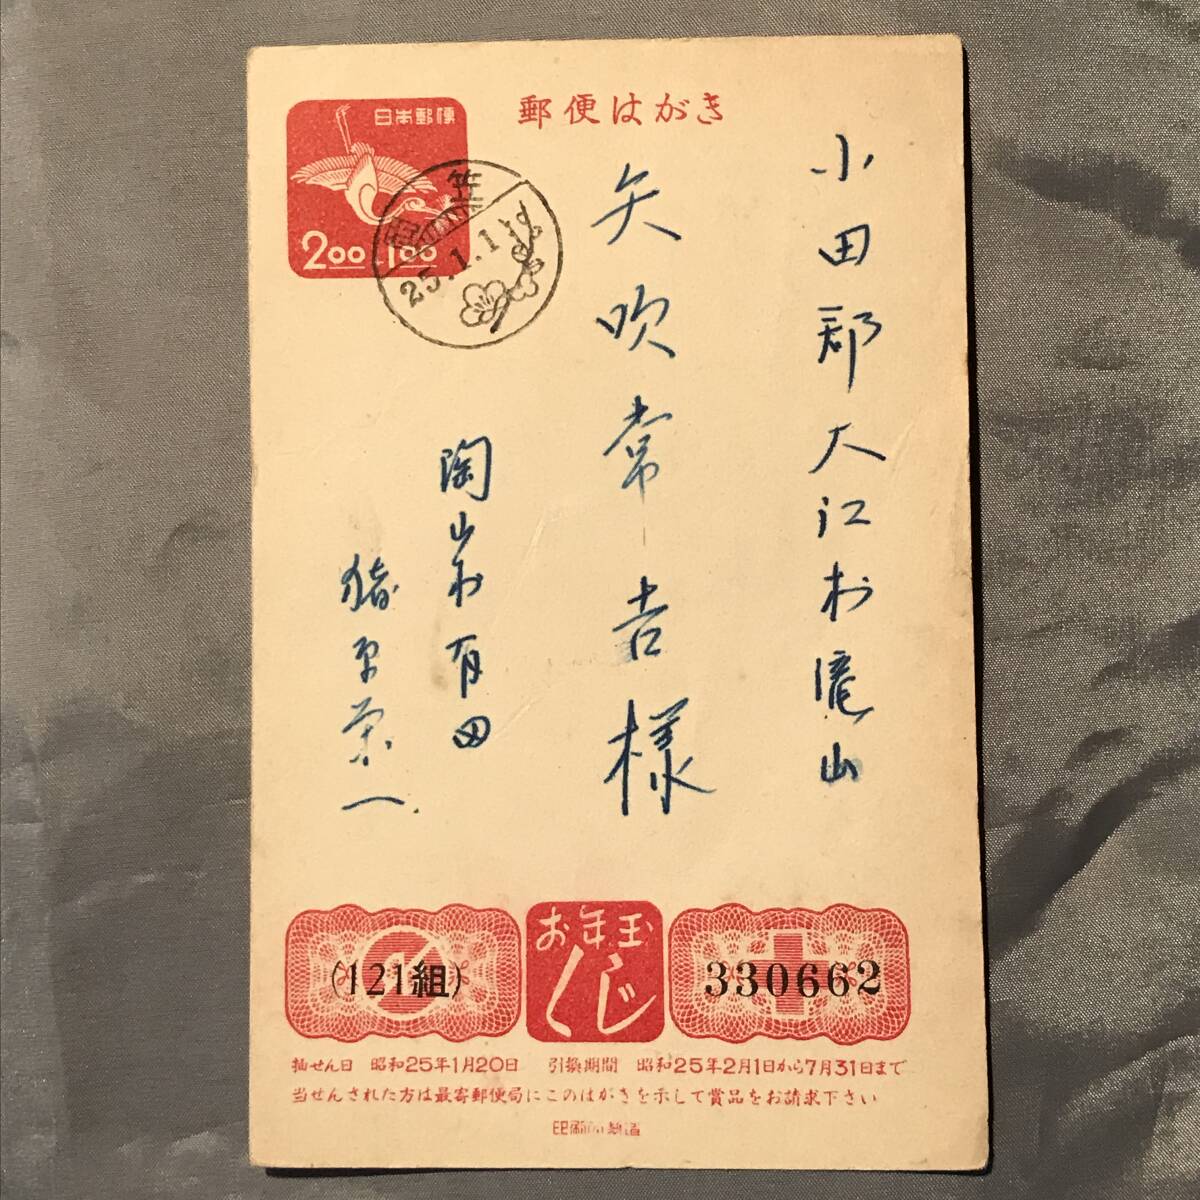 郵便はがき
日本郵便
2.00+1.00
笠
岡山県
25.1.1
小田郡大江村滝山
矢吹常吉様
陶山村有田
猪原栄一
お年玉
くじ
(121組)
330662
抽せん日 昭和25年1月20日 引換期間 昭和25年2月1日から7月31日まで
当せんされた方は最寄郵便局にこのはがきを示して賞品をお請求下さい
印刷庁製造